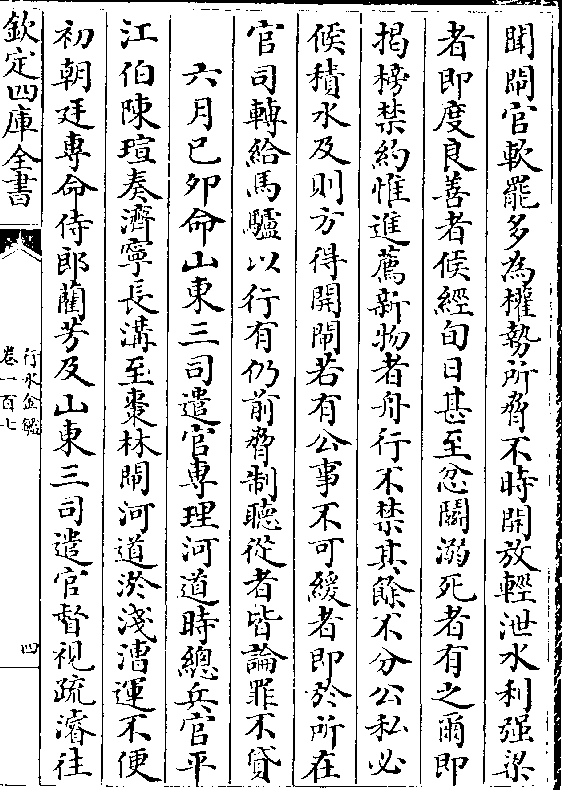 聞閘官軟罷多為權勢所脅不時開放輕泄水利强梁
者即度良善者候經旬日甚至忿鬬溺死者有之爾即
揭榜禁約惟進薦新物者舟行不禁其餘不分公私必
候積水及則方得開閘若有公事不可緩者即於所在
官司轉給馬驢以行有仍前脅制聽從者皆論罪不貸
六月己夘命山東三司遣官專理河道時總兵官平
江伯陳瑄奏濟寧長溝至棗林閘河道淤淺漕運不便
初朝廷專命侍郎藺芳及山東三司遣官督視疏濬往
欽定四庫全書
行水金鑑
卷一百七
四